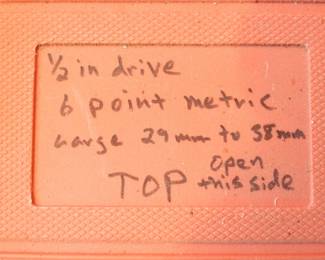 1/2 in drive
6 point metric
Large 29mm to 38mm
TOP open this side